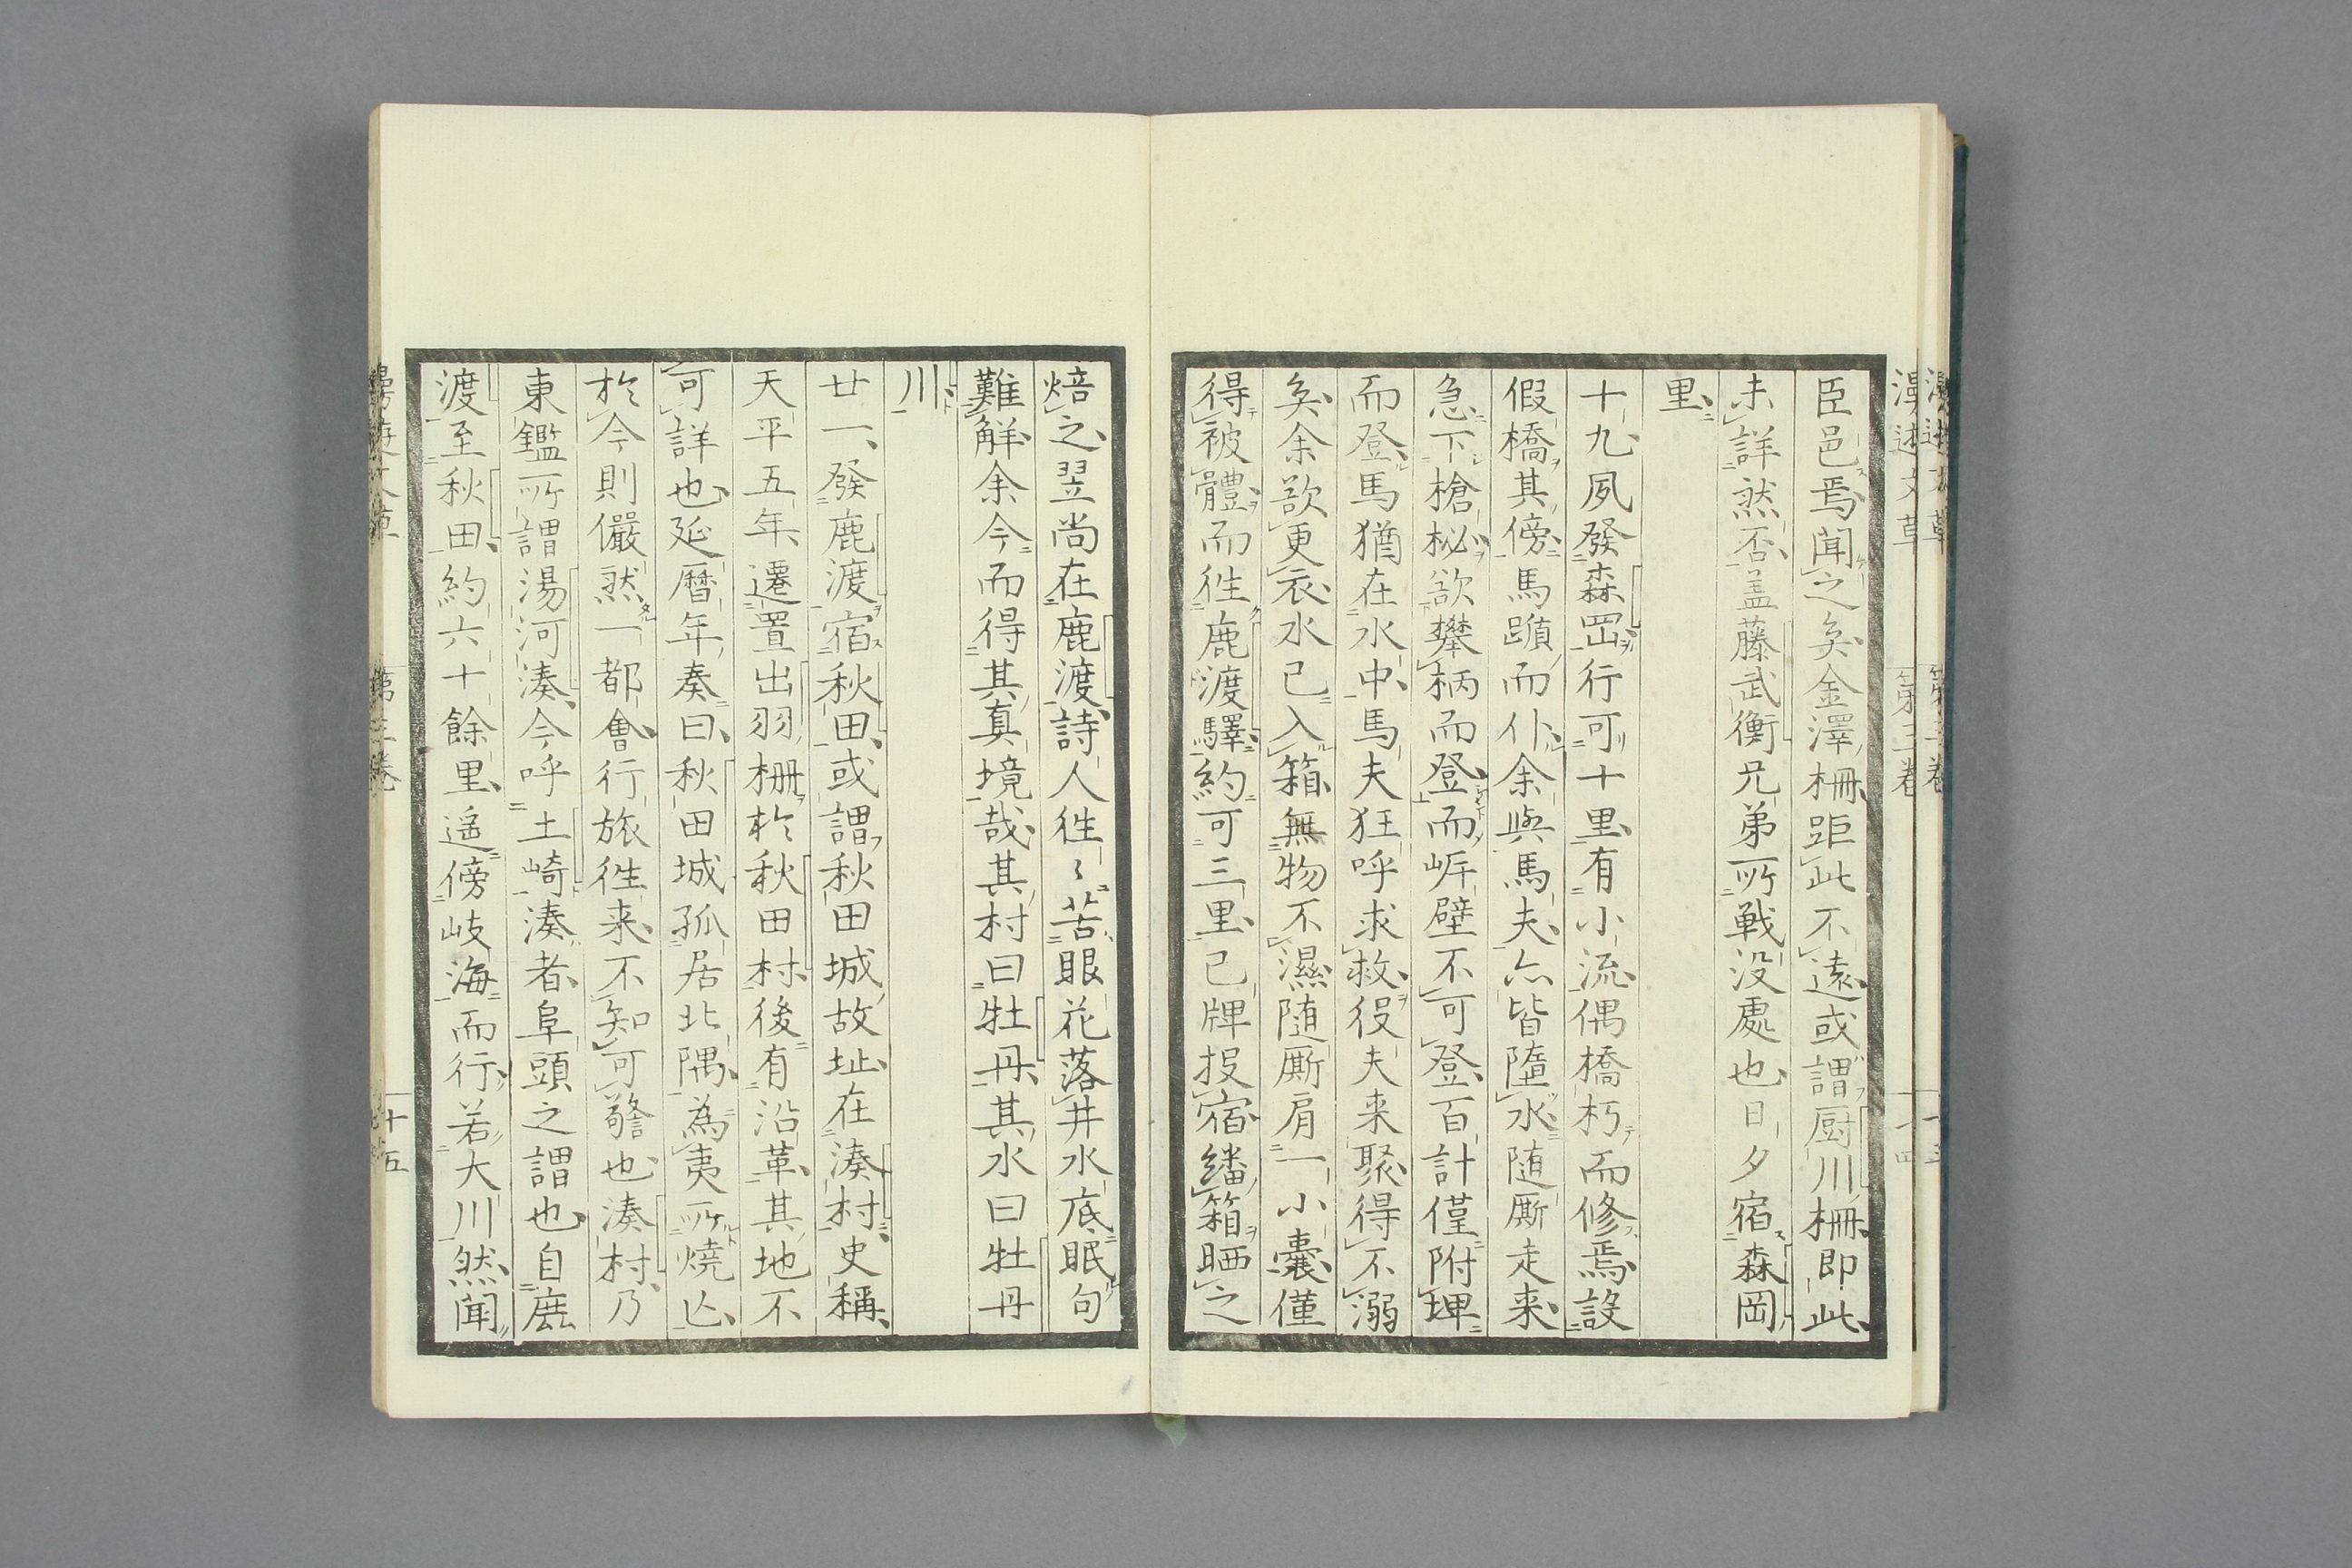 臣邑焉聞之矣金澤柵距此不遠或謂厨川柵即此
未詳然否蓋藤武衡兄弟所戦没處也日夕宿森岡
里
十九夙發森岡行可十里有小流偶橋朽而修焉設
假橋其傍馬躓而仆余與馬夫亦皆墮水随厮走来
急下槍柲欲攀柄而登而岸壁不可登百計僅附埋
而登馬猶在水中馬夫狂呼求救役夫来聚得不溺
矣余欲更衣水已入箱無物不濕随厮肩一小嚢僅
得被體而徃鹿渡驛約可三里已牌投宿繙箱晒之
焙之翌尚在鹿渡詩人徃〻苦眼花落井水底眠句
難解余今而得其真境哉其村曰牡丹其水曰牡丹
川
廿一發鹿渡宿秋田或謂秋田城故址在湊村史稱
天平五年遷置出羽柵於秋田村後有沿革其地不
可詳也延暦年奏曰秋田城孤居北隅為夷所燒亡
於今則儼然一都會行旅徃来不知可警也湊村乃
東鑑所謂湯河湊今呼土崎湊者阜頭之謂也自鹿
渡至秋田約六十餘里遥傍岐海而行若大川然聞
漫遊文草
第三巻
十四
第三巻
十五